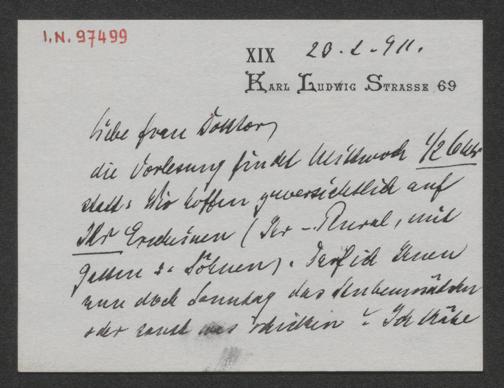 I.N. 97499
XIX 20.2.911.
Karl Ludwig Strasse 69
Liebe Frau Doktor,
die Vorlesung findet Mittwoch 1/2 6 Uhr
statt. Wir hoffen zuversichtlich auf
Ihr Erscheinen (Ihr – Plural, mit
Gatten u. Söhnen). Darf ich Ihnen
nun doch Sonntag das
oder sonst was schicken? Ich hätte